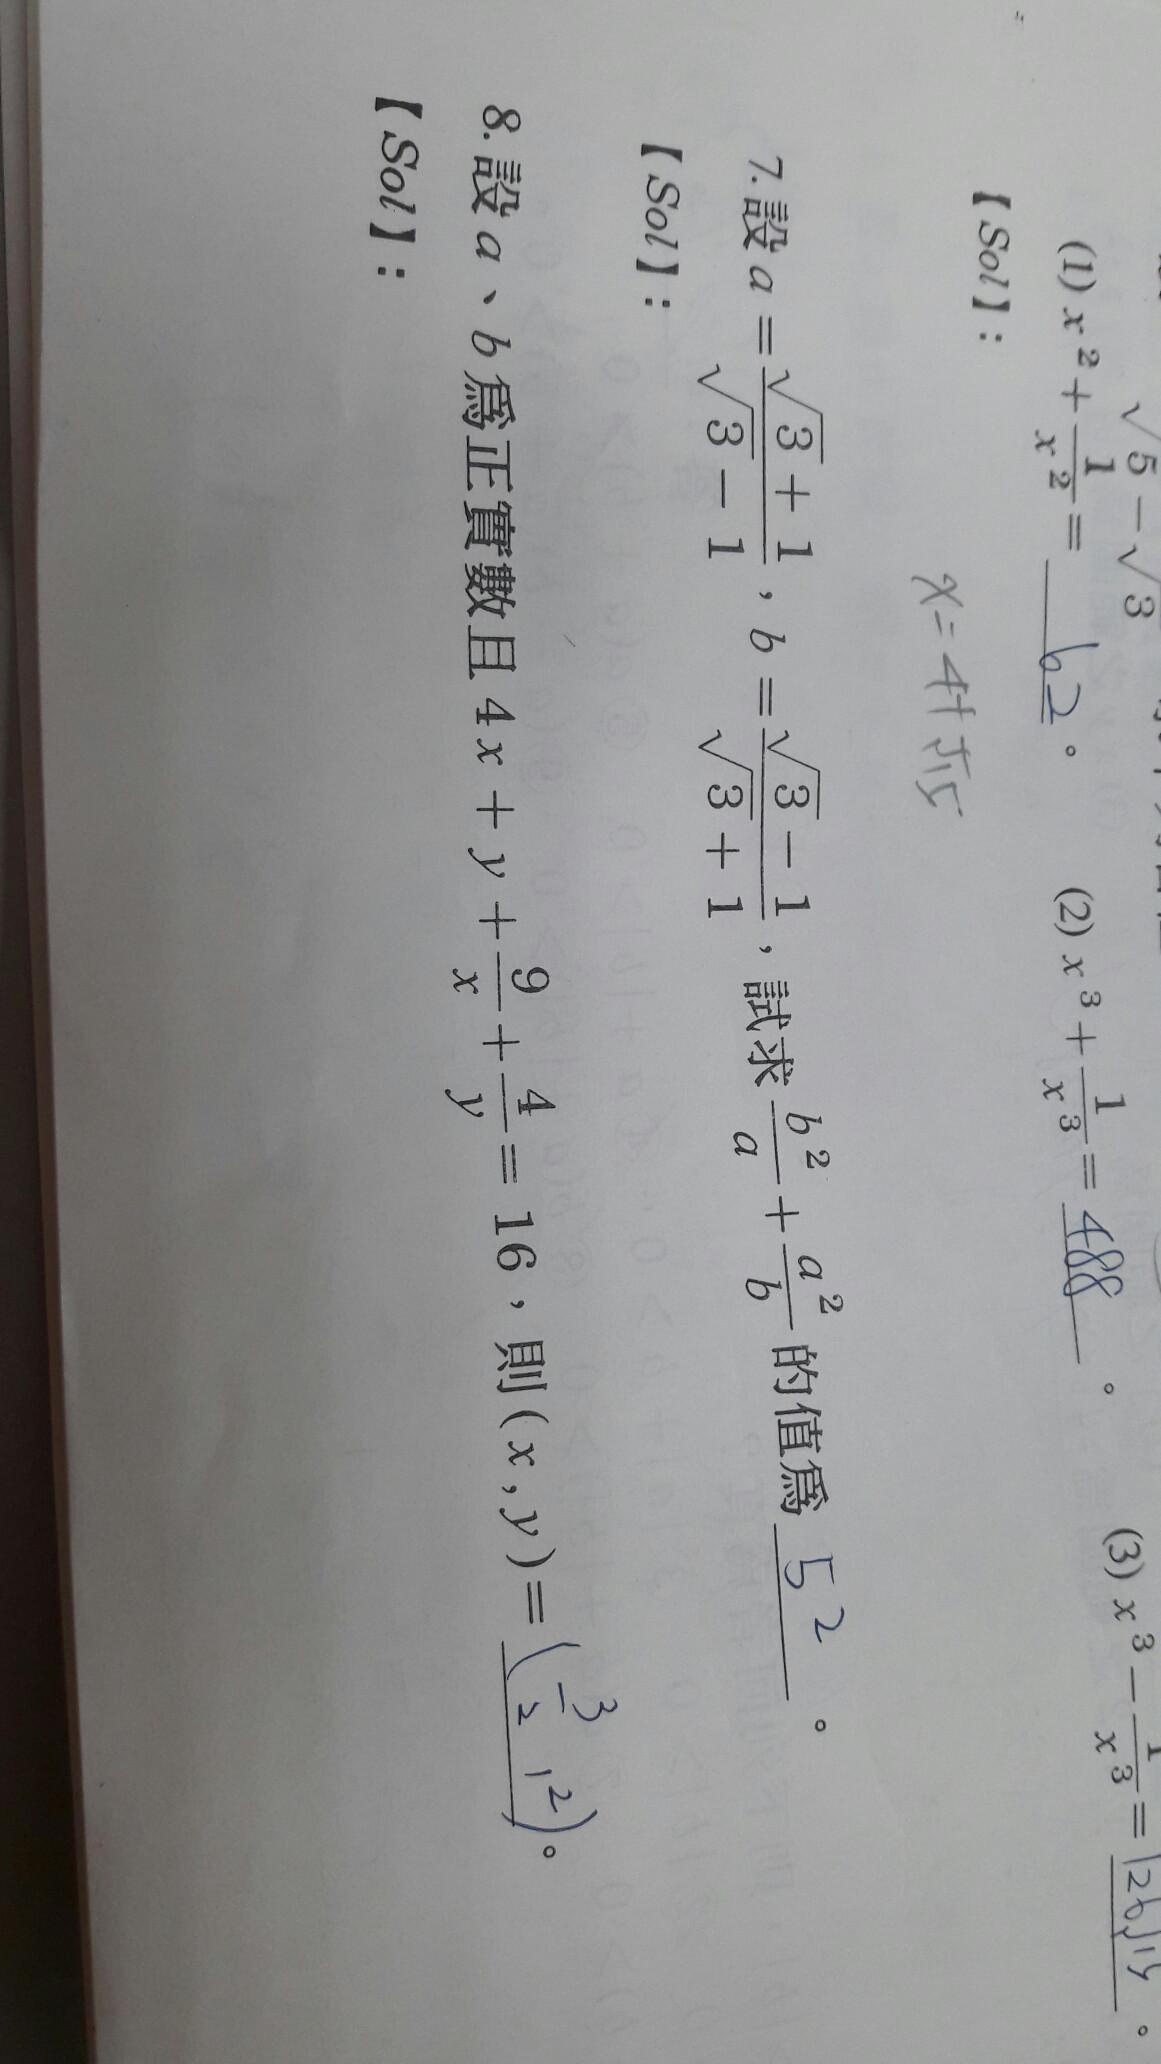 √5 - √3
(1) x² + 1/x² = 62 。 (2) x³ + 1/x³ = 488 。 (3) x³ - 1/x³ = 126√15 。
【Sol】:
x = 4+√15
7. 設 a = (√3 + 1)/(√3 - 1) , b = (√3 - 1)/(√3 + 1) , 試求 b²/a + a²/b 的值爲 52 。
【Sol】:
8. 設 a、b 爲正實數且 4x + y + 9/x + 4/y = 16 , 則 (x , y) = (3/2 , 2) 。
【Sol】: